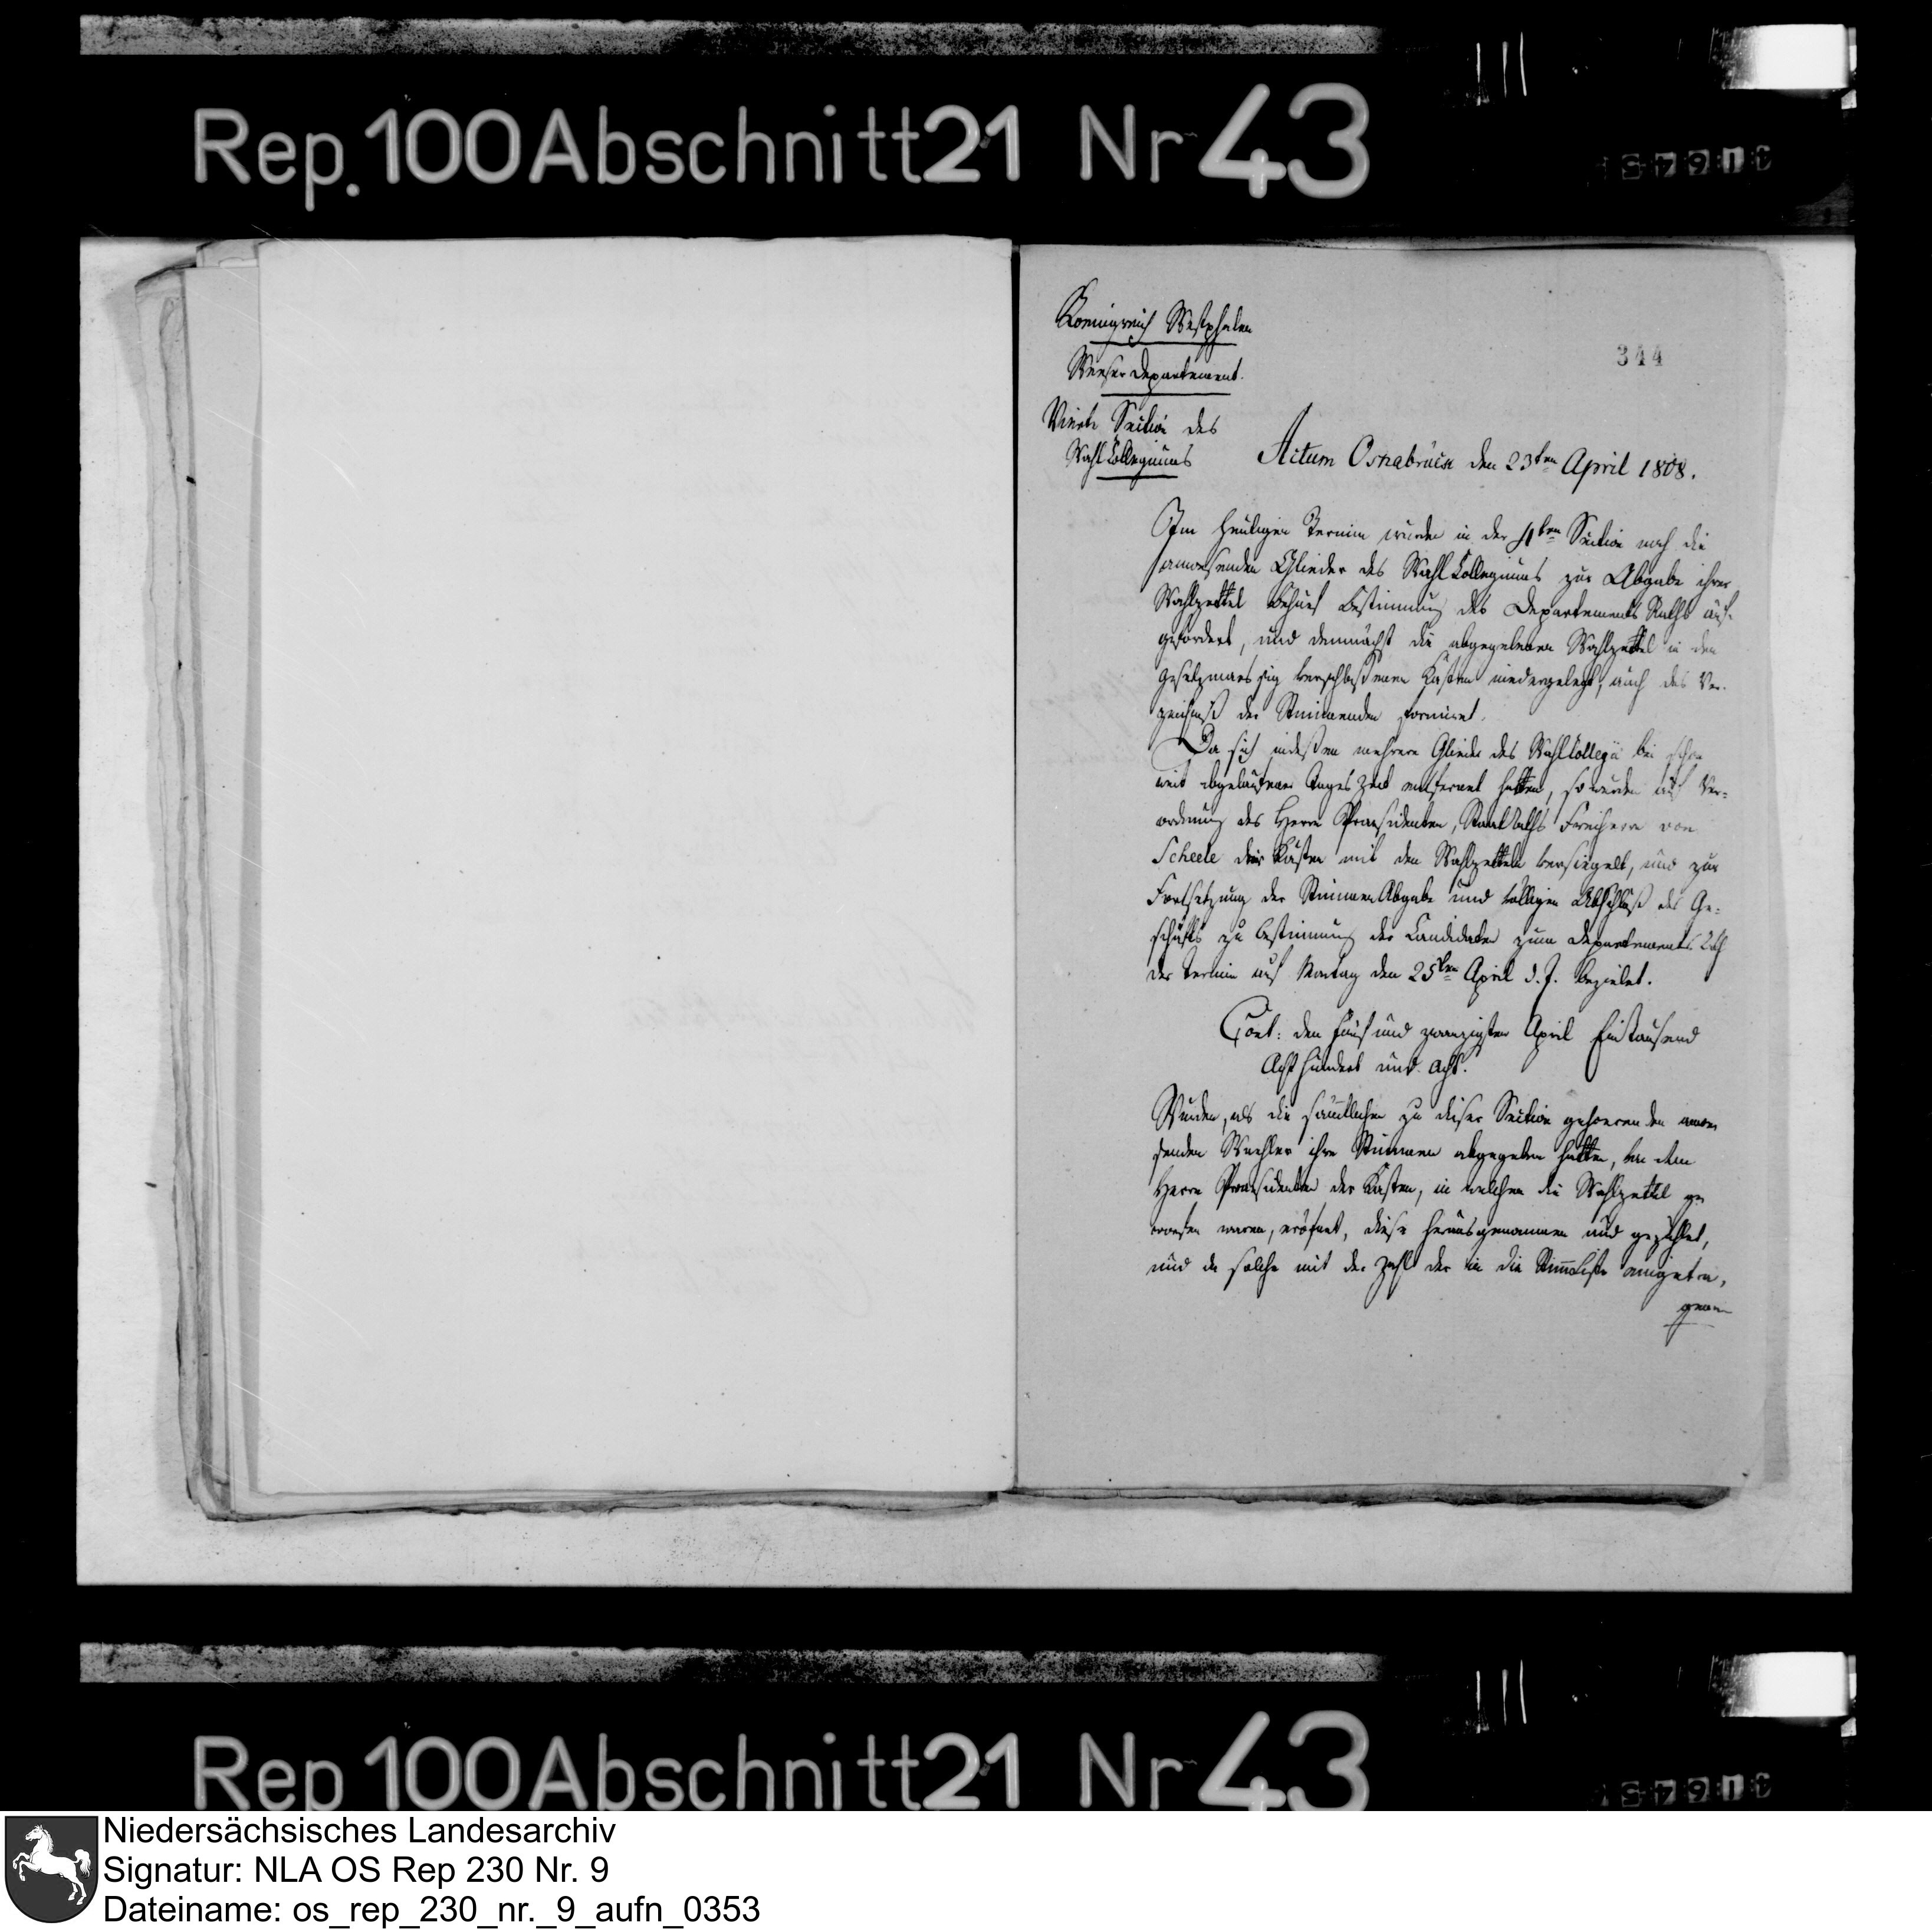 Rep.100Abschnitt21 Nr 43
Koenigreich Westphalen
344
Weeser Departement.
Vierte Section des
WahlCollegiums
Actum Osnabrück den 23ten April 1808.
Im heutigen Termin wurden in der 4ten Section noch die
anwesenden Glieder des WahlCollegiums zur Abgabe ihrer
Wahlzettel behuef Bestimmung des Departements Raths auf-
gefordert, und demnächst die abgegebenen Wahlzettel in den
gesetzmaessig verschloßenen Kasten niedergelegt, auch das Ver-
zeichniß der Stimmenden formiret.
Da sich indeßen mehrere Glieder des WahlCollegii bei schon
weit abgelaufener Tages Zeit entfernet hatten, so wurden auf Ver-
ordnung des Herrn Praesidenten, StaatsRaths Freiherrn von
Scheele der Kasten mit den Wahlzetteln versiegelt, und zur
Fortsetzung der StimmenAbgabe und völligen Abschluß des Ge-
schäfts zu Bestimmung der Candidaten zum Departements Rath
der Termin auf Montag den 25ten April d. J. bezielet.
Cont: den fünf und zwanzigsten April Eintausend
Acht hundert und Acht.
Wurden, als die sämtlichen zu dieser Section gehoerenden anwe
senden Waehler ihre Stimmen abgegeben hatten, von dem
Herrn Praesidenten der Kasten, in welchen die Wahlzettel ge
worfen waren, eröfnet, diese herausgenommen und gezählet,
und da solche mit der Zahl der in die Stimmliste eingetra,
genen
Rep 100Abschnitt21 Nr 43
Niedersächsisches Landesarchiv
Signatur: NLA OS Rep 230 Nr. 9
Dateiname: os_rep_230_nr._9_aufn_0353